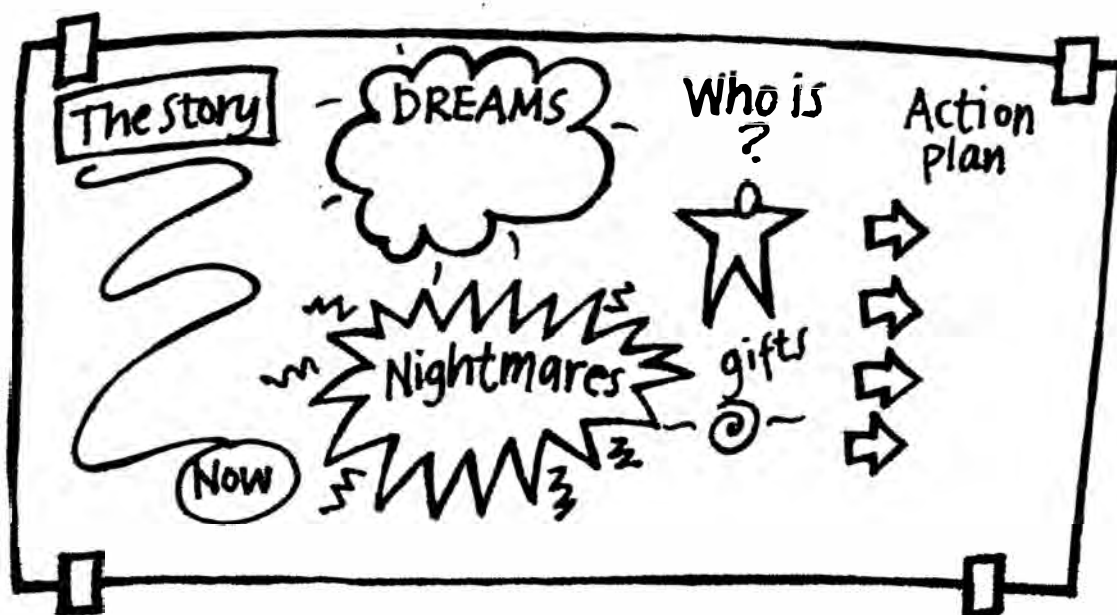 The Story
Now
DREAMS
Nightmares
Who is
?
gifts
Action
plan